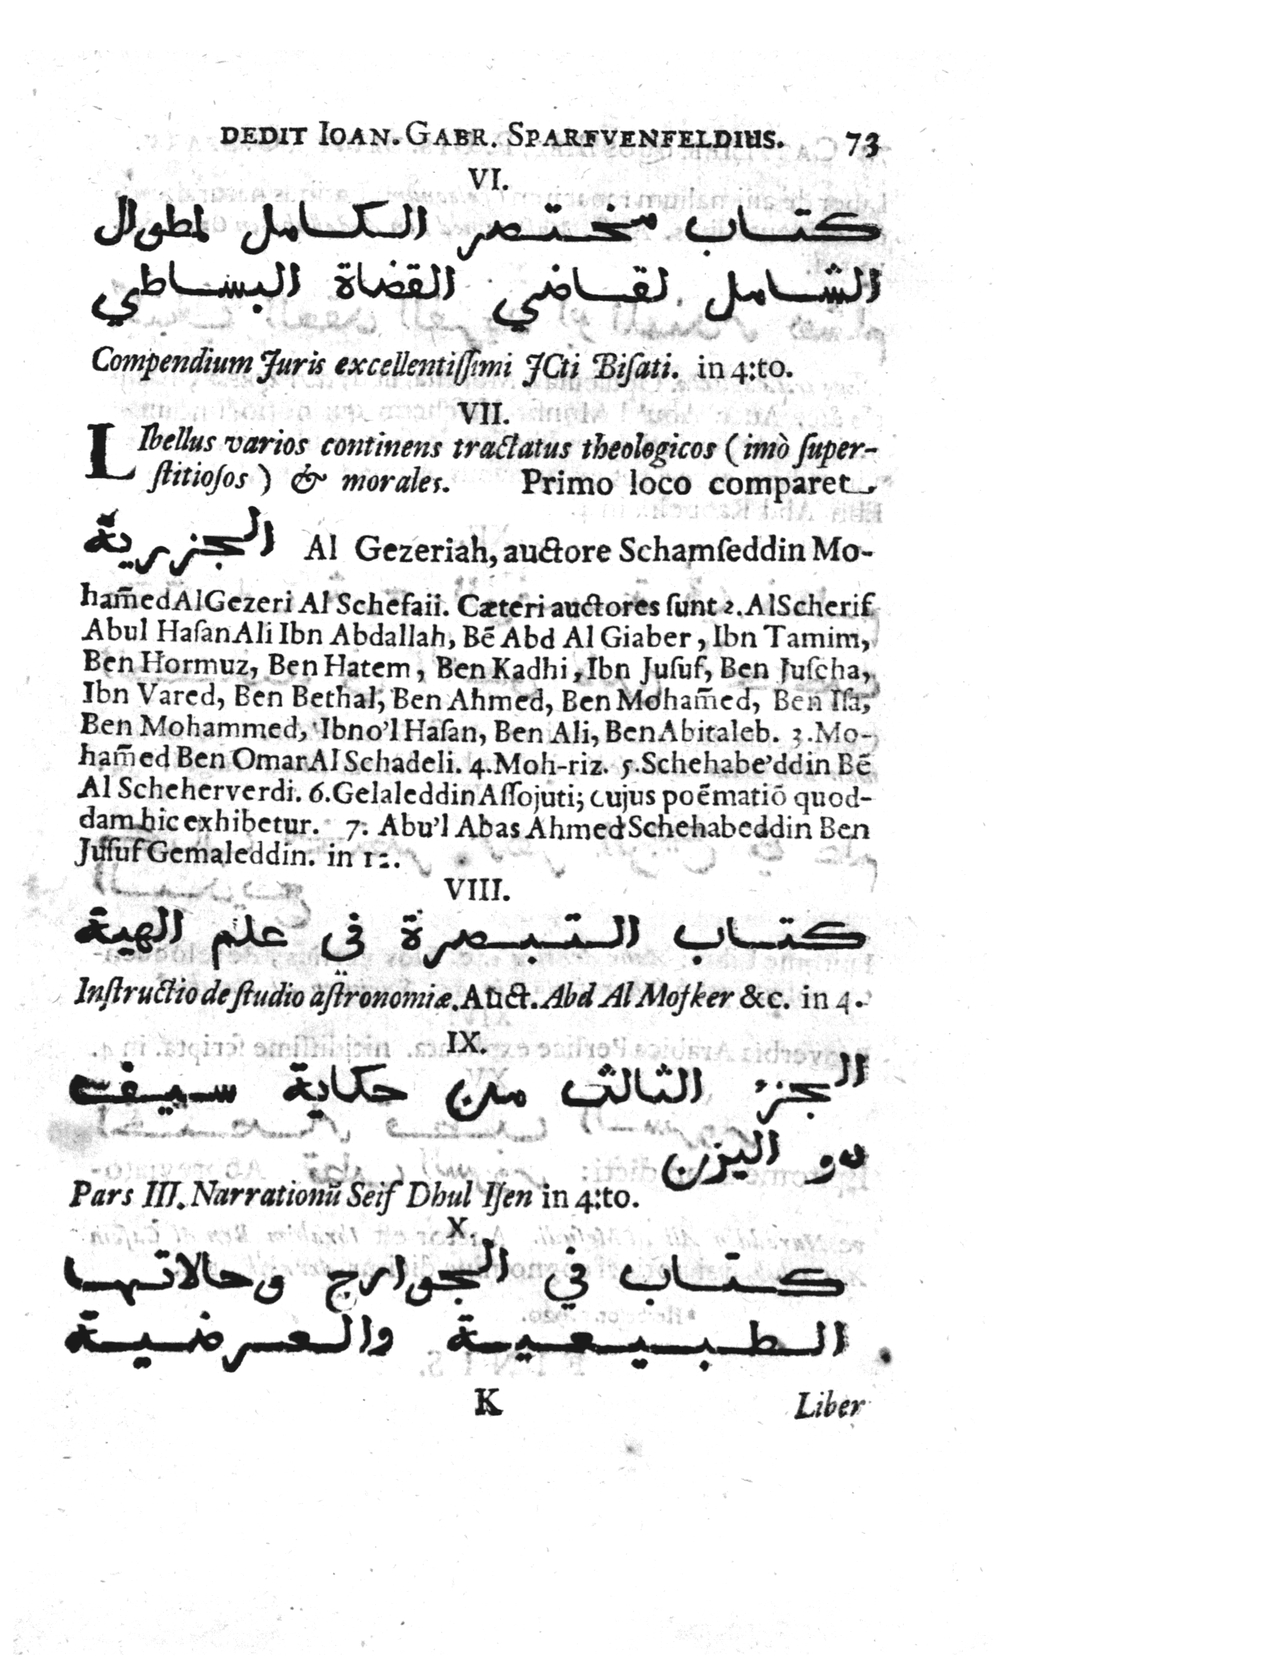 DEDIT IOAN. GABR. SPARFVENFELDIUS. 73
VI.
كتاب مختصر الكامل لمطوال
الشامل لقاضي القضاة البساطي
Compendium Juris excellentiſſimi JCti Biſati. in 4:to.
VII.
LIbellus varios continens tractatus theologicos (imò ſuper-
ſtitioſos) & morales. Primo loco comparet
الجزرية Al Gezeriah, auctore Schamſeddin Mo-
ham̃ed Al Gezeri Al Schefaii. Cæteri auctores ſunt 2. Al Scherif
Abul Haſan Ali Ibn Abdallah, Bẽ Abd Al Giaber, Ibn Tamim,
Ben Hormuz, Ben Hatem, Ben Kadhi, Ibn Juſuf, Ben Juſcha,
Ibn Vared, Ben Bethal, Ben Ahmed, Ben Moham̃ed, Ben Iſa,
Ben Mohammed, Ibno'l Haſan, Ben Ali, Ben Abitaleb. 3. Mo-
ham̃ed Ben Omar Al Schadeli. 4. Moh-riz. 5. Schehabe'ddin Bẽ
Al Scheherverdi. 6. Gelaleddin Aſſojuti; cujus poẽmatiõ quod-
dam hic exhibetur. 7. Abu'l Abas Ahmed Schehabeddin Ben
Juſuf Gemaleddin. in 12.
VIII.
كتاب التبصرة في علم الهية
Inſtructio de ſtudio aſtronomiæ. Auct. Abd Al Moſker &c. in 4.
IX.
الجزء الثالث من حكاية سيف
دو اليزن
Pars III. Narrationũ Seif Dhul Iſen in 4:to.
X.
كتاب في الجوارج وحالاتها
الطبيعية والعرضية
K Liber